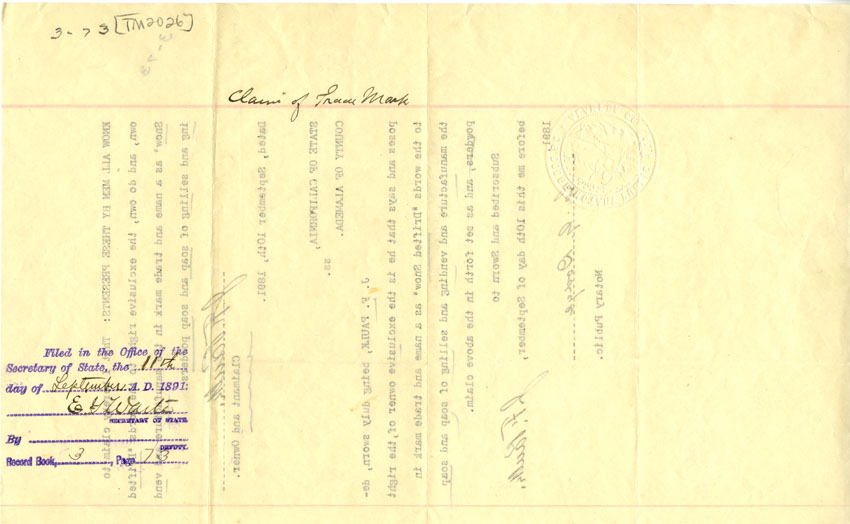 3-73 [TM2026]
Claim of Trade Mark
Filed in the Office of the
Secretary of State, the 11th
day of September A. D. 1891:
SECRETARY OF STATE.
By
DEPUTY.
Record Book, 3, Page 73
KNOW ALL MEN BY THESE PRESENTS: claim to
own, and do own, the exclusive right "Drifted
Snow, as a name and trade mark in vend
ing and selling of soap and soap powders.
Claimant and Owner.
Dated, September 10th, 1891.
STATE OF CALIFORNIA,
ss.
COUNTY OF ALAMEDA.
J. F. PAULK, being duly sworn, de-
poses and says that he is the exclusive owner of, the right
to the words "Drifted Snow, as a name and trade mark in
the manufacture and vending and selling of soap and soap
powders, and as set forth in the above claim.
Subscribed and Sworn to
before me this 10th day of September,
1891.
Notary Public.